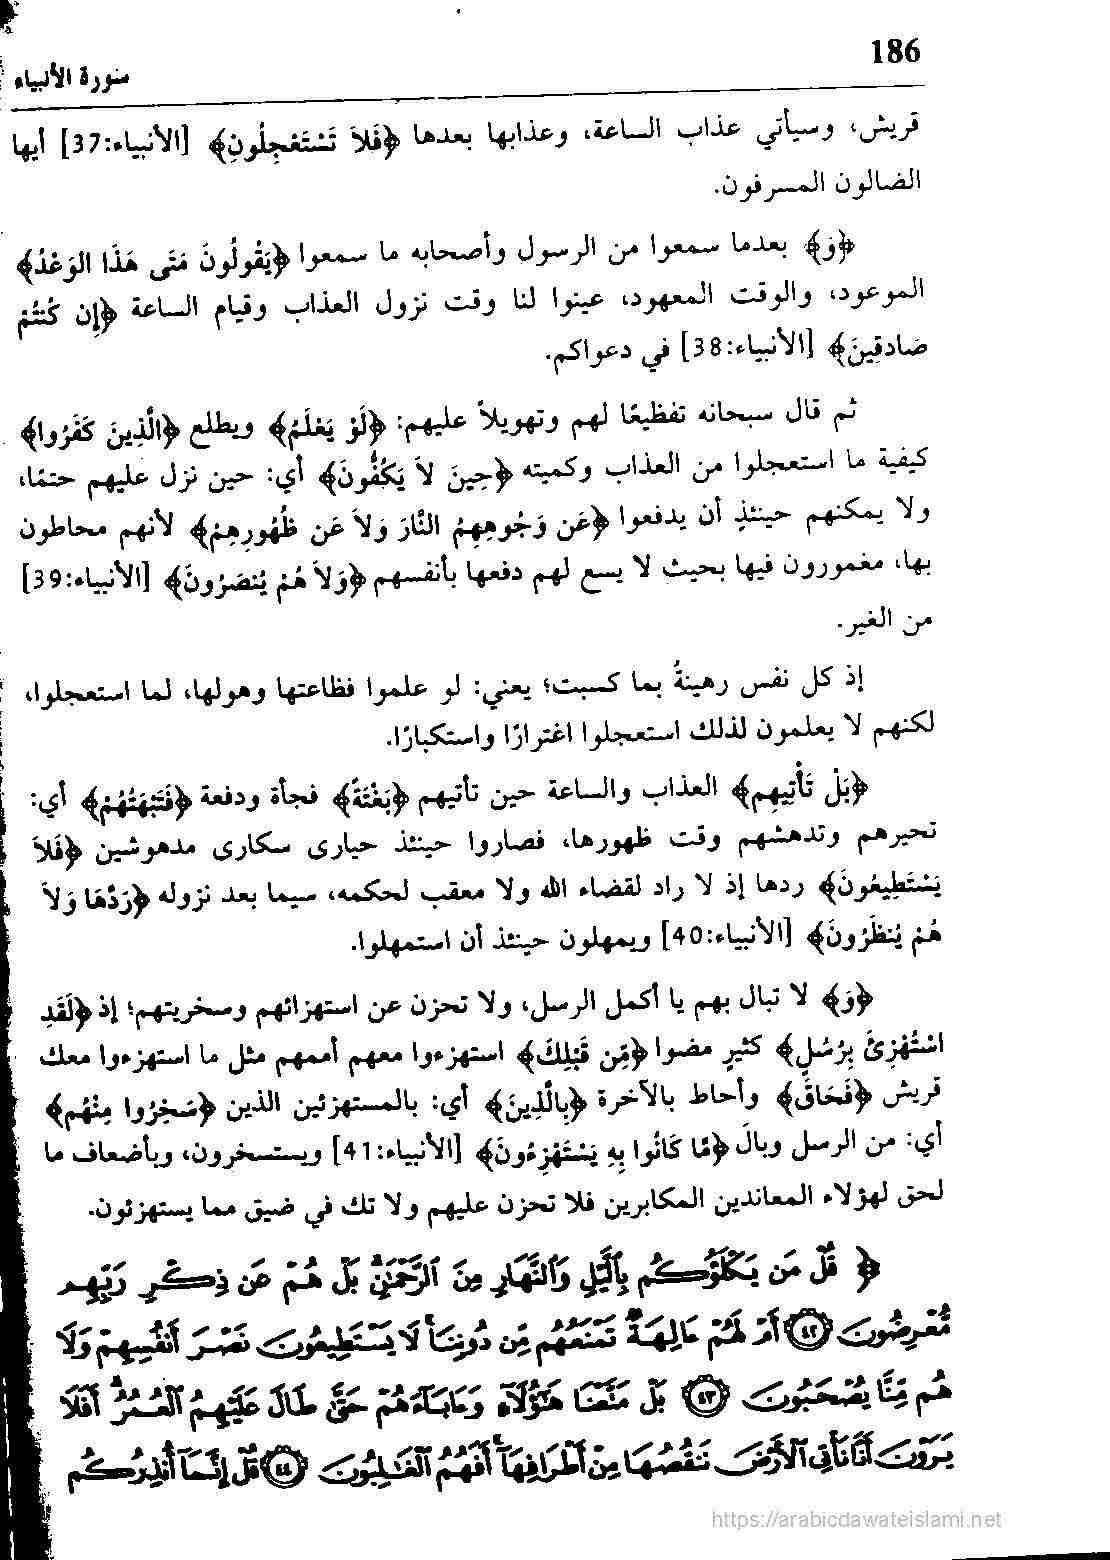 186
سورة الأنبياء
قريش، وسيأتي عذاب الساعة، وعذابها بعدها ﴿فَلاَ تَسْتَعْجِلُونِ﴾ [الأنبياء:37] أيها
الضالون المسرفون.
﴿وَ﴾ بعدما سمعوا من الرسول وأصحابه ما سمعوا ﴿يَقُولُونَ مَتَى هَذَا الوَعْدُ﴾
الموعود، والوقت المعهود، عينوا لنا وقت نزول العذاب وقيام الساعة ﴿إِن كُنتُمْ
صَادِقِينَ﴾ [الأنبياء:38] في دعواكم.
ثم قال سبحانه تفظيعًا لهم وتهويلاً عليهم: ﴿لَوْ يَعْلَمُ﴾ ويطلع ﴿الَّذِينَ كَفَرُوا﴾
كيفية ما استعجلوا من العذاب وكميته ﴿حِينَ لاَ يَكُفُّونَ﴾ أي: حين نزل عليهم حتمًا،
ولا يمكنهم حينئذٍ أن يدفعوا ﴿عَن وَجُوهِهِمُ النَّارَ وَلاَ عَن ظُهُورِهِمْ﴾ لأنهم محاطون
بها، مغمورون فيها بحيث لا يسع لهم دفعها بأنفسهم ﴿وَلاَ هُمْ يُنصَرُونَ﴾ [الأنبياء:39]
من الغير.
إذ كل نفس رهينةُ بما كسبت؛ يعني: لو علموا فظاعتها وهولها، لما استعجلوا،
لكنهم لا يعلمون لذلك استعجلوا اغترارًا واستكبارًا.
﴿بَلْ تَأْتِيهِم﴾ العذاب والساعة حين تأتيهم ﴿بَغْتَةً﴾ فجأة ودفعة ﴿فَتَبْهَتُهُمْ﴾ أي:
تحيرهم وتدهشهم وقت ظهورها، فصاروا حينئذ حيارى سكارى مدهوشين ﴿فَلاَ
يَسْتَطِيعُونَ﴾ ردها إذ لا راد لقضاء الله ولا معقب لحكمه، سيما بعد نزوله ﴿رَدَّهَا وَلاَ
هُمْ يُنظَرُونَ﴾ [الأنبياء:40] ويمهلون حينئذ أن استمهلوا.
﴿وَ﴾ لا تبال بهم يا أكمل الرسل، ولا تحزن عن استهزائهم وسخريتهم؛ إذ ﴿لَقَدِ
اسْتُهْزِئَ بِرُسُلٍ﴾ كثيرٍ مضوا ﴿مِّن قَبْلِكَ﴾ استهزءوا معهم أممهم مثل ما استهزءوا معك
قريش ﴿فَحَاقَ﴾ وأحاط بالآخرة ﴿بِالَّذِينَ﴾ أي: بالمستهزئين الذين ﴿سَخِرُوا مِنْهُم﴾
أي: من الرسل وبالَ ﴿مَّا كَانُوا بِهِ يَسْتَهْزِءُونَ﴾ [الأنبياء:41] ويستسخرون، وبأضعاف ما
لحق لهؤلاء المعاندين المكابرين فلا تحزن عليهم ولا تك في ضيق مما يستهزئون.
﴿ قُلْ مَن يَكْلَؤُكُم بِٱلَّيْلِ وَٱلنَّهَارِ مِنَ ٱلرَّحْمَٰنِ ۗ بَلْ هُمْ عَن ذِكْرِ رَبِّهِم
مُّعْرِضُونَ ﴿٤٢﴾ أَمْ لَهُمْ ءَالِهَةٌ تَمْنَعُهُم مِّن دُونِنَا ۚ لَا يَسْتَطِيعُونَ نَصْرَ أَنفُسِهِمْ وَلَا
هُم مِّنَّا يُصْحَبُونَ ﴿٤٣﴾ بَلْ مَتَّعْنَا هَٰٓؤُلَآءِ وَءَابَآءَهُمْ حَتَّىٰ طَالَ عَلَيْهِمُ ٱلْعُمُرُ ۗ أَفَلَا
يَرَوْنَ أَنَّا نَأْتِى ٱلْأَرْضَ نَنقُصُهَا مِنْ أَطْرَافِهَآ ۚ أَفَهُمُ ٱلْغَٰلِبُونَ ﴿٤٤﴾ قُلْ إِنَّمَآ أُنذِرُكُم
https://arabicdawateislami.net